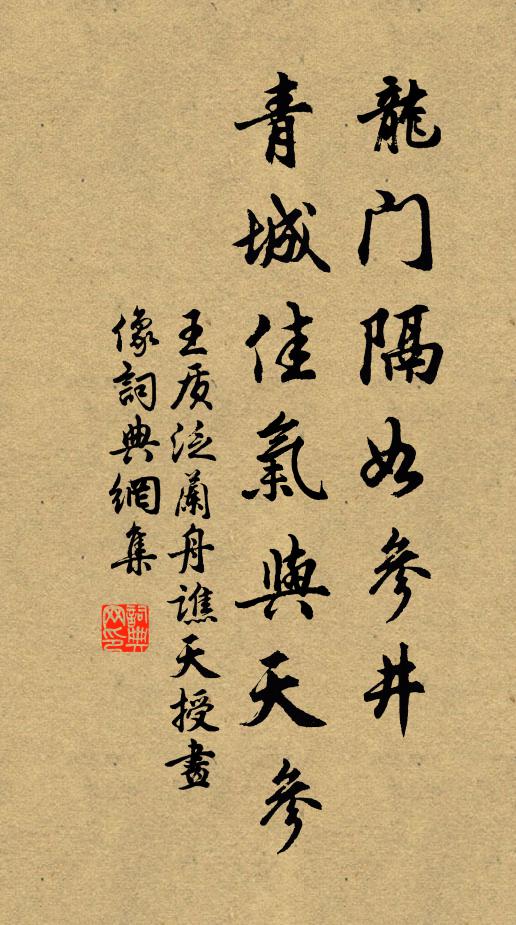 龍门隔如參井
青城佳氣與天參
王质泛蘭舟譙天授畫
像詞典網集
詞典
网印